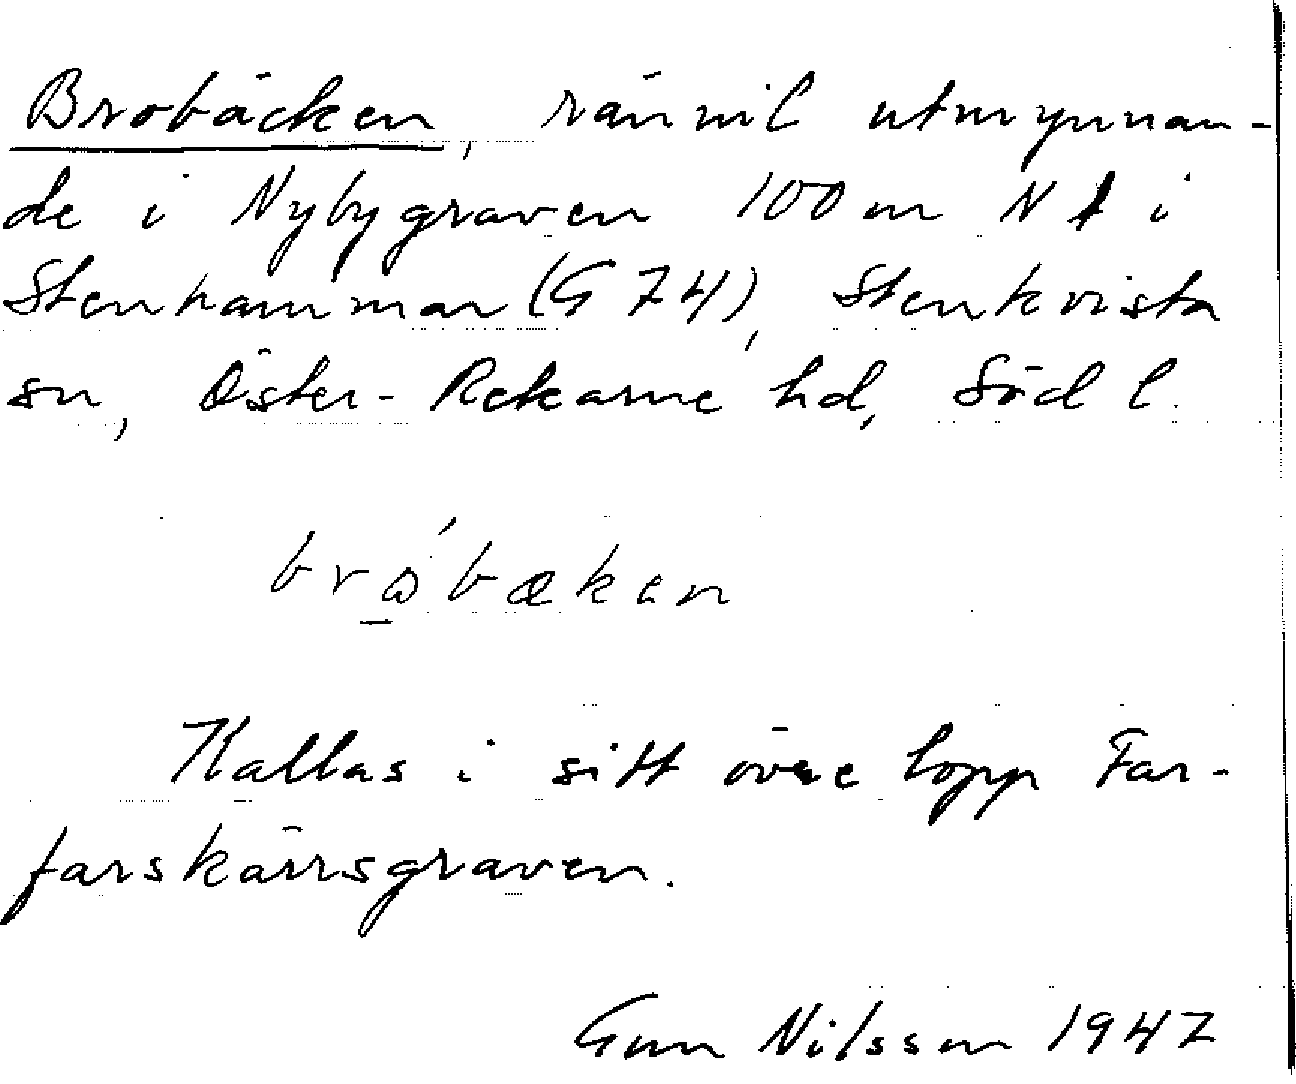 Brobäcken, rännil utmynnan-
de i Nybygraven 100 m N i
Stenhammar (G 74), Stenkvista
sn, Öster-Rekarne hd, Söd l.
bræken
Kallas i sitt övre lopp Far-
farskärrsgraven.
Gun Nilsson 1947